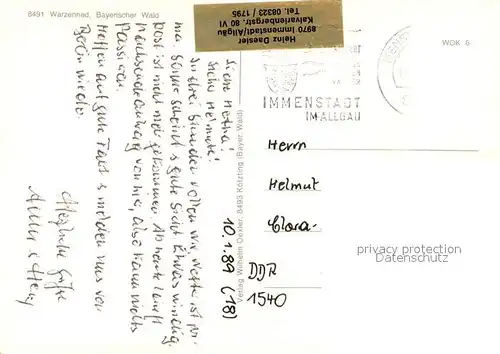 8491 Warzenried, Bayerischer Wald
Heinz Daesler
8970 Immenstadt/Allgäu
Kalvarienbergstr. 80 VI
Tel. 08323 / 1795
WOK 6
IMMENSTADT
IM ALLGÄU
10.1.89 (.18)
Liebe Hertha!
Lieber Helmut!
In drei Stunden rollen wir, Wette ist pri-
ma. Bahn scheint gute Sicht etwas windig.
Post ist nicht mehr gekommen. Ab heute läuft
Nachsendeantrag von hier, also kann nichts
passieren.
Hoffen auf gute Fahrt & melden uns von
Berlin wieder.
Herzliche Grüße
Verlag Wilhelm Drexler, 8493 Kötzting (Bayer. Wald)
Herrn
Helmut
Clora
DDR
1540
privacy protection
Datenschutz